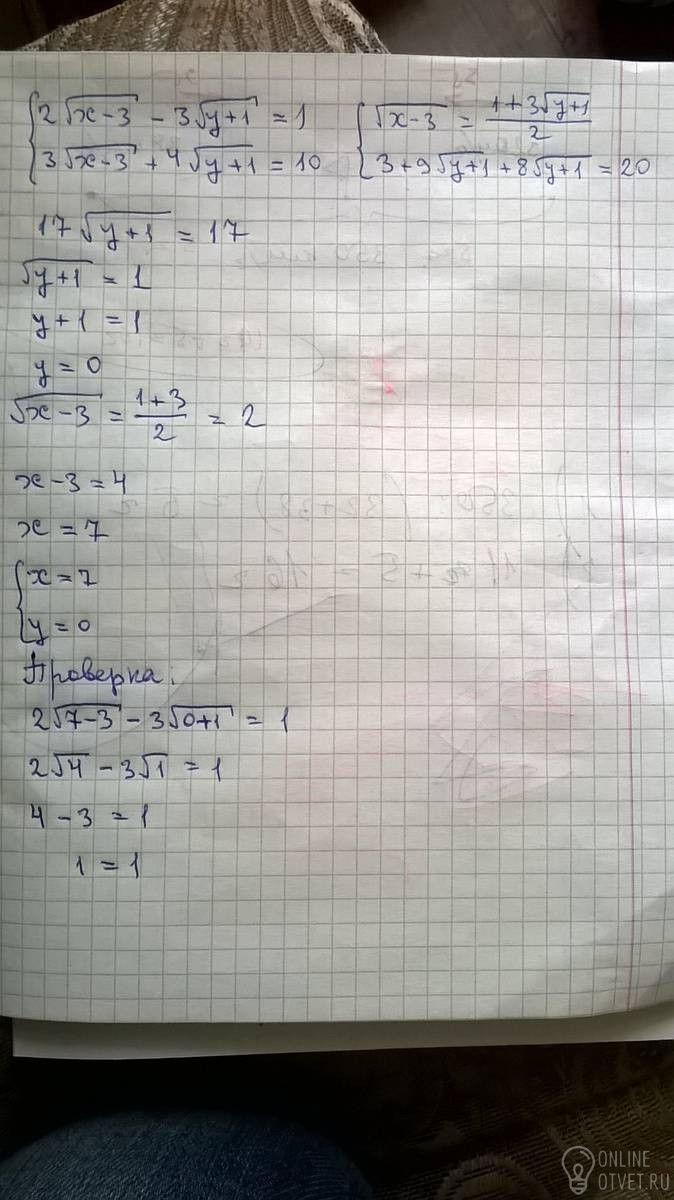 2√(x-3) - 3√(y+1) = 1
3√(x-3) + 4√(y+1) = 10
√(x-3) = (1+3√(y+1))/2
3+9√(y+1)+8√(y+1) = 20
17√(y+1) = 17
√(y+1) = 1
y+1 = 1
y = 0
√(x-3) = (1+3)/2 = 2
x-3 = 4
x = 7
{x = 7
y = 0
Проверка:
2√(7-3) - 3√(0+1) = 1
2√4 - 3√1 = 1
4 - 3 = 1
1 = 1
ONLINE
OTVET.RU